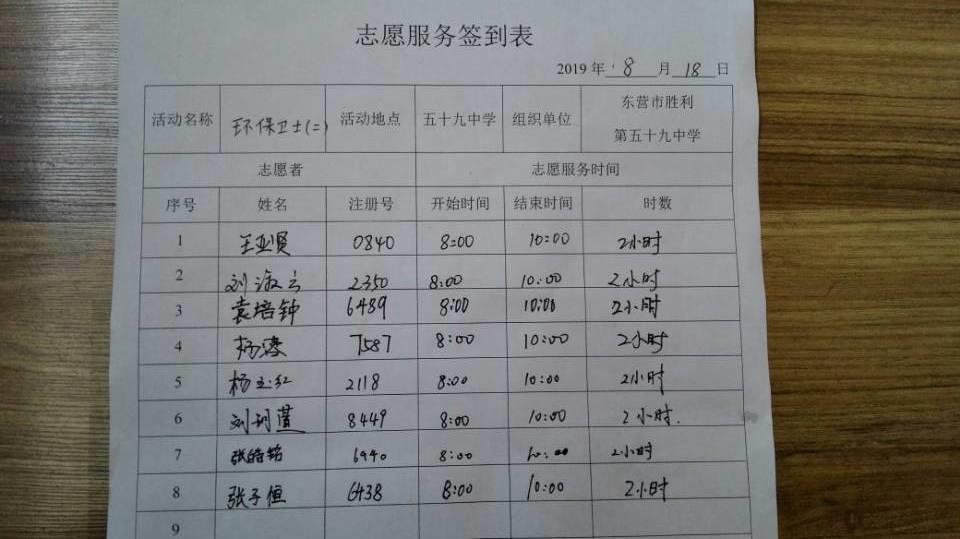 志愿服务签到表
2019 年 8 月 18 日
活动名称 环保卫士(二) 活动地点 五十九中学 组织单位 东营市胜利
第五十九中学
志愿者 志愿服务时间
序号 姓名 注册号 开始时间 结束时间 时数
1 王亚贤 0840 8:00 10:00 2小时
2 刘淑云 2350 8:00 10:00 2小时
3 袁培钟 6489 8:00 10:00 2小时
4 杨蓉 7587 8:00 10:00 2小时
5 杨玉红 2118 8:00 10:00 2小时
6 8449 8:00 10:00 2小时.
7 张皓铭 6940 8:00 10:00 2小时
8 张子恒 6438 8:00 10:00 2小时
9